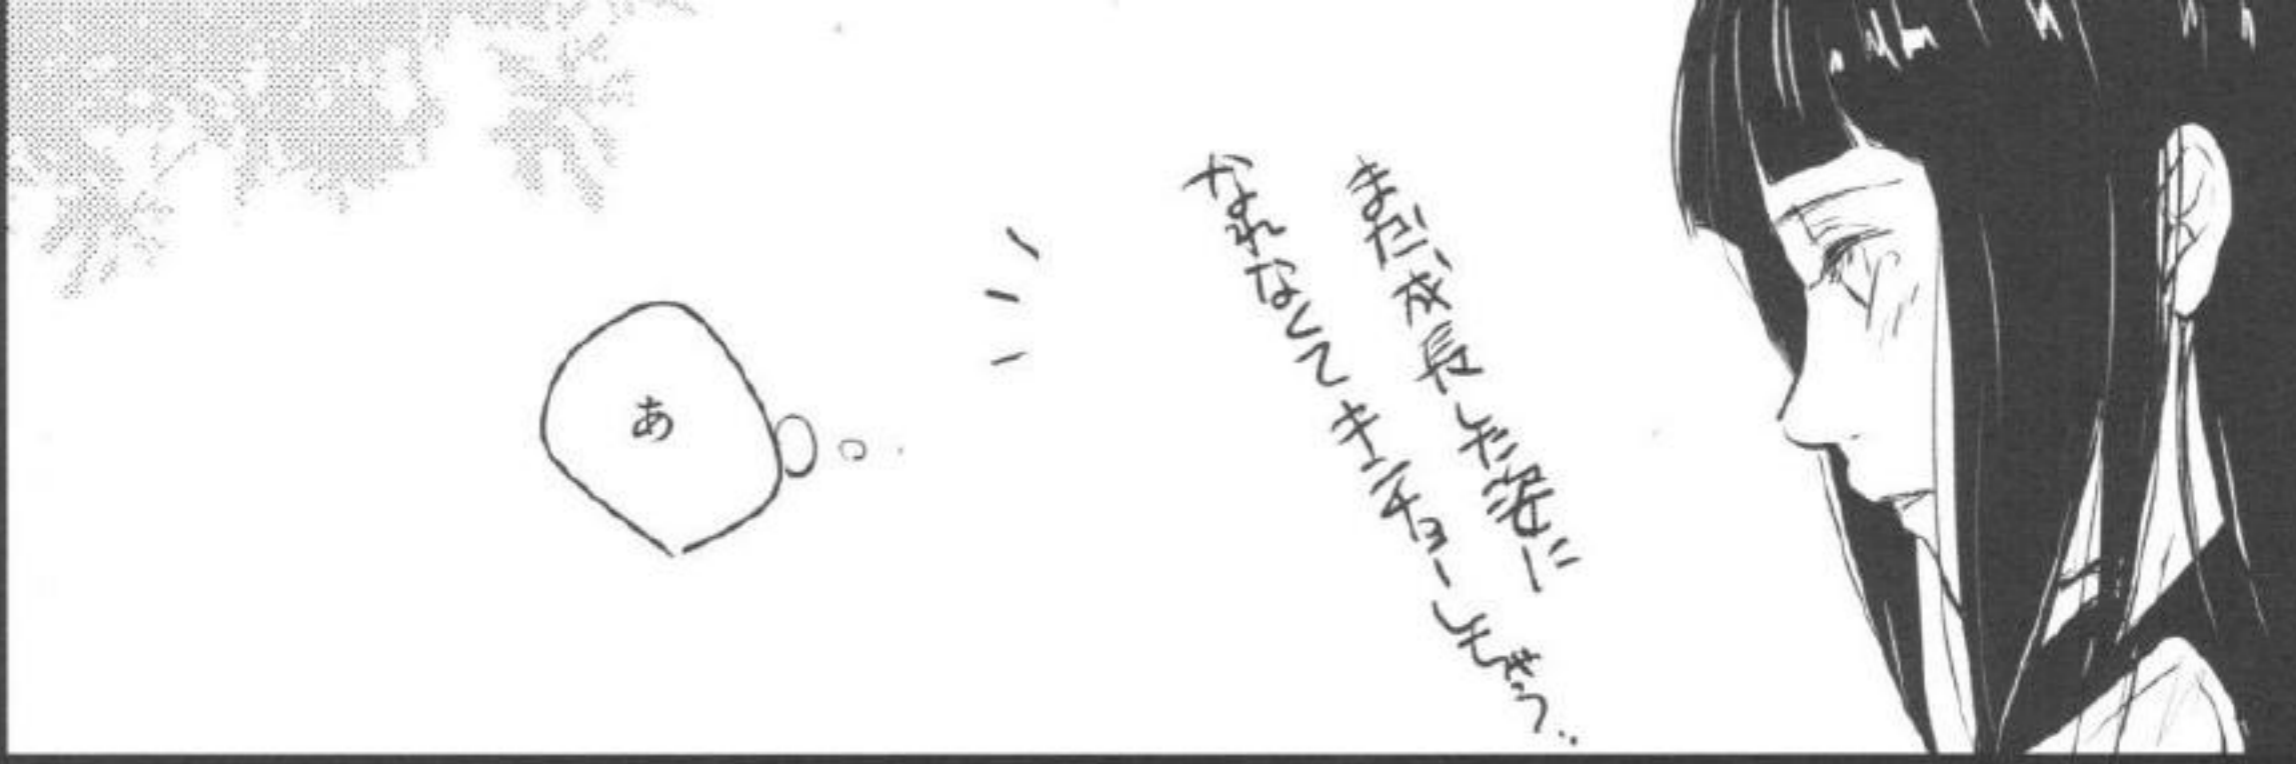 まだ成長した姿に
なれなくてキンチョーしちゃう..
あ